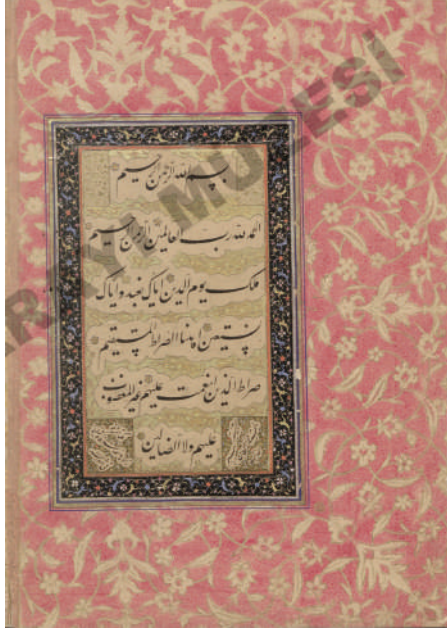 بسم الله الرحمن الرحيم
الحمد لله رب العالمين الرحمن الرحيم
ملك يوم الدين اياك نعبد و اياك
نستعين اهدنا الصراط المستقيم
صراط الذين انعمت عليهم غير المغضوب
عليهم ولا الضالين